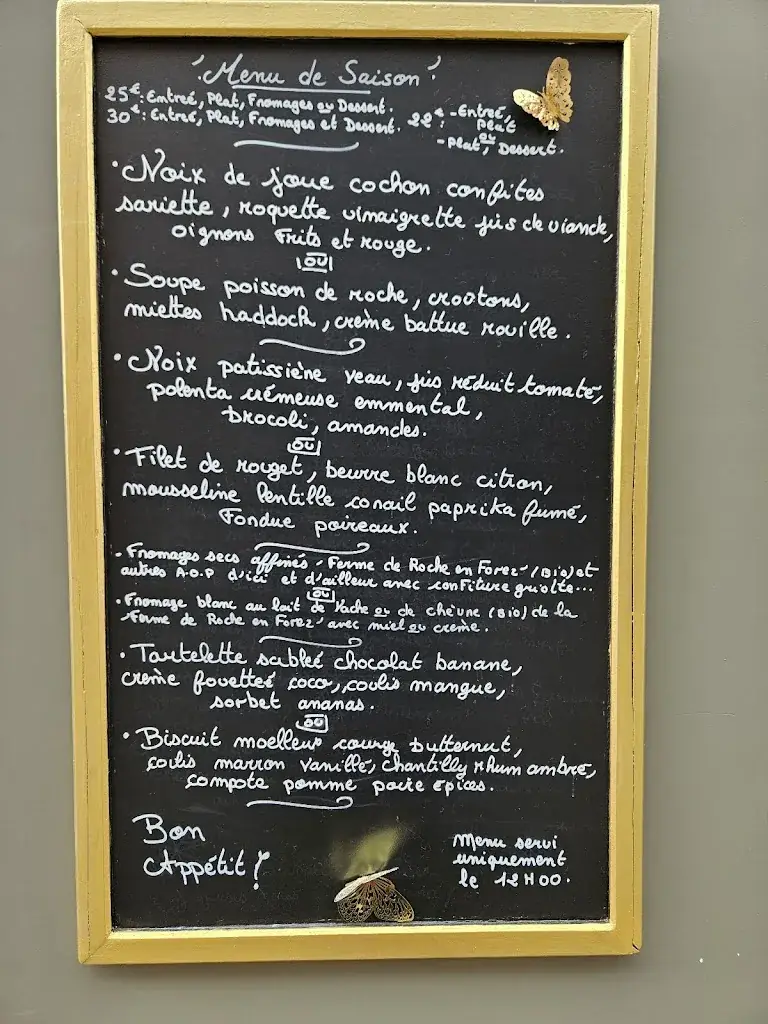 'Menu de Saison'
25€: Entreé, Plat, Fromages ou Dessert.
30€: Entreé, Plat, Fromages et Dessert.
22€ - Entreé,
: Plat
ou
- Plat, Dessert.
• Noix de joue cochon confites
sariette, roquette vinaigrette jus de viande,
oignons Frits et rouge.
ou
• Soupe poisson de roche, croûtons,
miettes haddock, crème battue rouille.
• Noix patissière veau, jus réduit tomate,
polenta crémeuse emmental,
brocoli, amandes.
ou
• Filet de rouget, beurre blanc citron,
mousseline lentille corail paprika fumé,
Fondue poireaux.
- Fromages secs affinés "Ferme de Roche en Forez" (Bio) et
autres A.O.P d'ici et d'ailleur avec confiture griotte...
ou
• Fromage blanc au lait de Vache ou de chèvre (Bio) de la
"Ferme de Roche en Forez" avec miel ou crème.
• Tartelette sableé chocolat banane,
crème fouetteé coco, coulis mangue,
sorbet ananas.
ou
• Biscuit moelleux courge butternut,
coulis marron vanille, chantilly rhum ambré,
compote pomme poire épices.
Bon
Appétit!
Menu servi
uniquement
le 12H00.